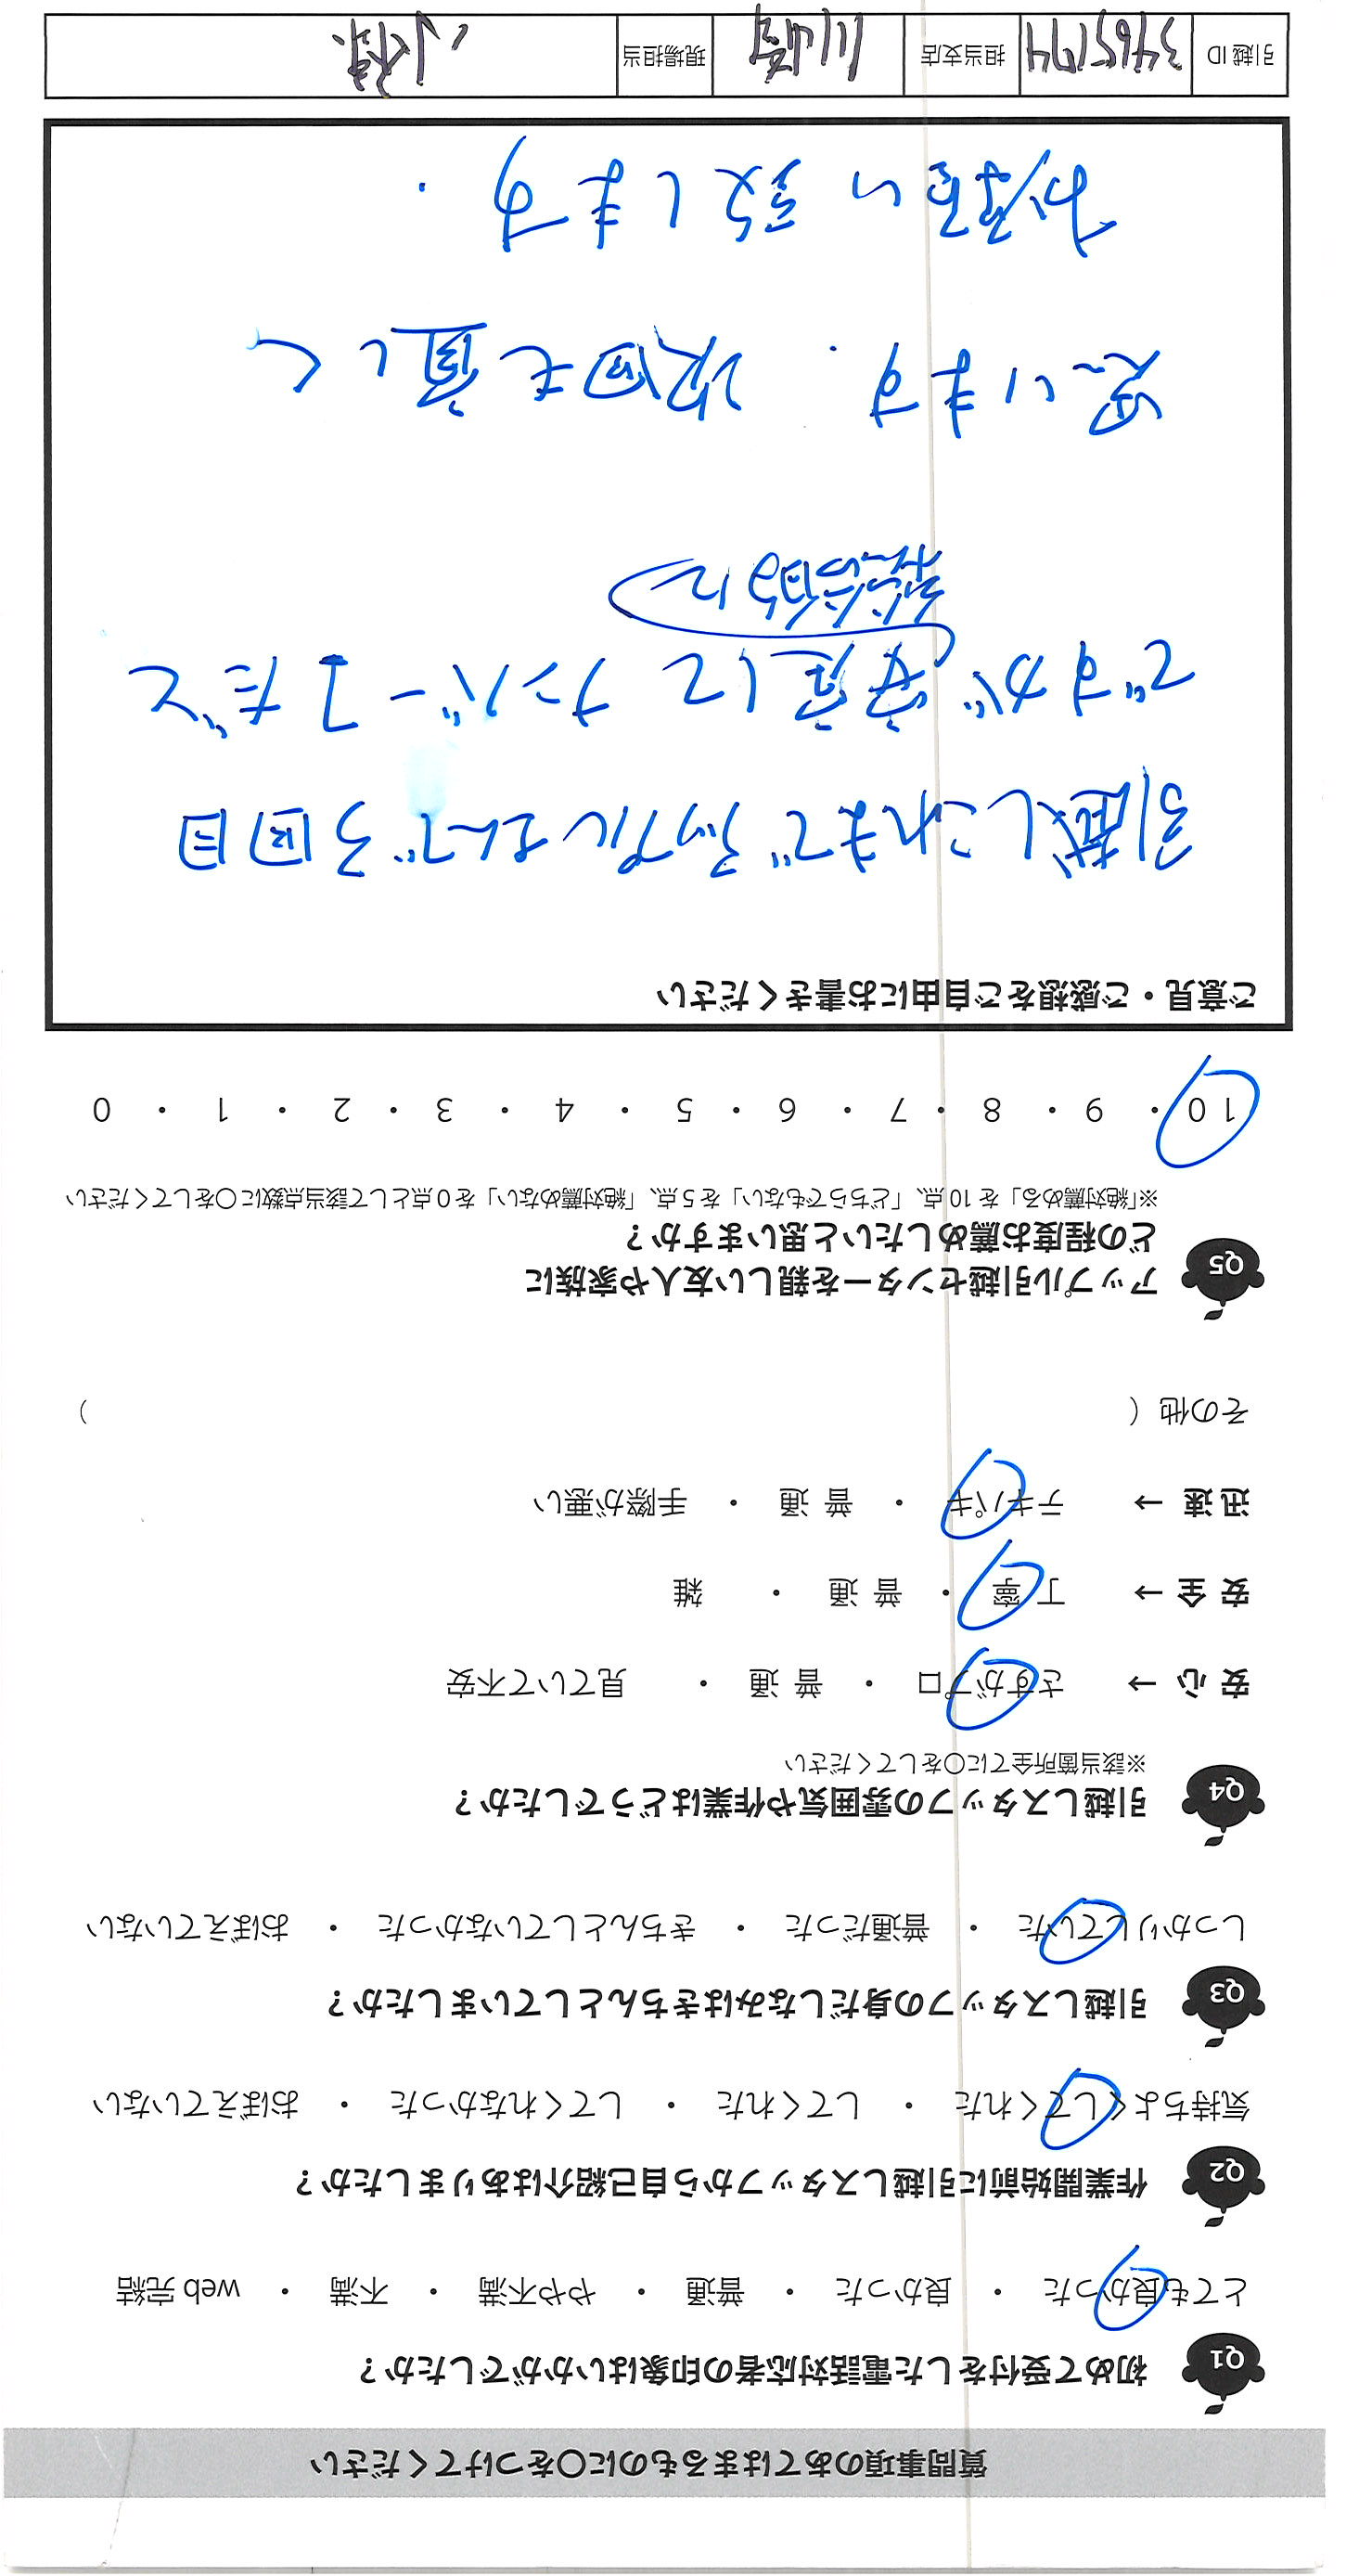 質問事項のあてはまるものに○をつけてください
Q1 初めて受付をした電話対応者の印象はいかがでしたか？
とても良かった ・ 良かった ・ 普通 ・ やや不満 ・ 不満 ・ web 完結
Q2 作業開始前に引越しスタッフから自己紹介はありましたか？
気持ちよくしてくれた ・ してくれた ・ してくれなかった ・ おぼえていない
Q3 引越しスタッフの身だしなみはきちんとしていましたか？
しっかりしていた ・ 普通だった ・ きちんとしていなかった ・ おぼえていない
Q4 引越しスタッフの雰囲気や作業はどうでしたか？
※該当箇所全てに○をしてください
安 心 → さすがプロ ・ 普 通 ・ 見ていて不安
安 全 → 丁 寧 ・ 普 通 ・ 雑
迅 速 → テキパキ ・ 普 通 ・ 手際が悪い
その他（ ）
Q5 アップル引越センターを親しい友人や家族に
どの程度お薦めしたいと思いますか？
※「絶対薦める」を 10 点、「どちらでもない」を 5 点、「絶対薦めない」を 0 点として該当点数に○をしてください
10 ・ 9 ・ 8 ・ 7 ・ 6 ・ 5 ・ 4 ・ 3 ・ 2 ・ 1 ・ 0
ご意見・ご感想をご自由にお書きください
引越しこれまでアップルさんで3回目
ですが、安定してナンバー1だと
総合的に
思います. 次回も宜しく
お願い致します.
引越 ID 3465174 担当支店 川崎 現場担当 小林